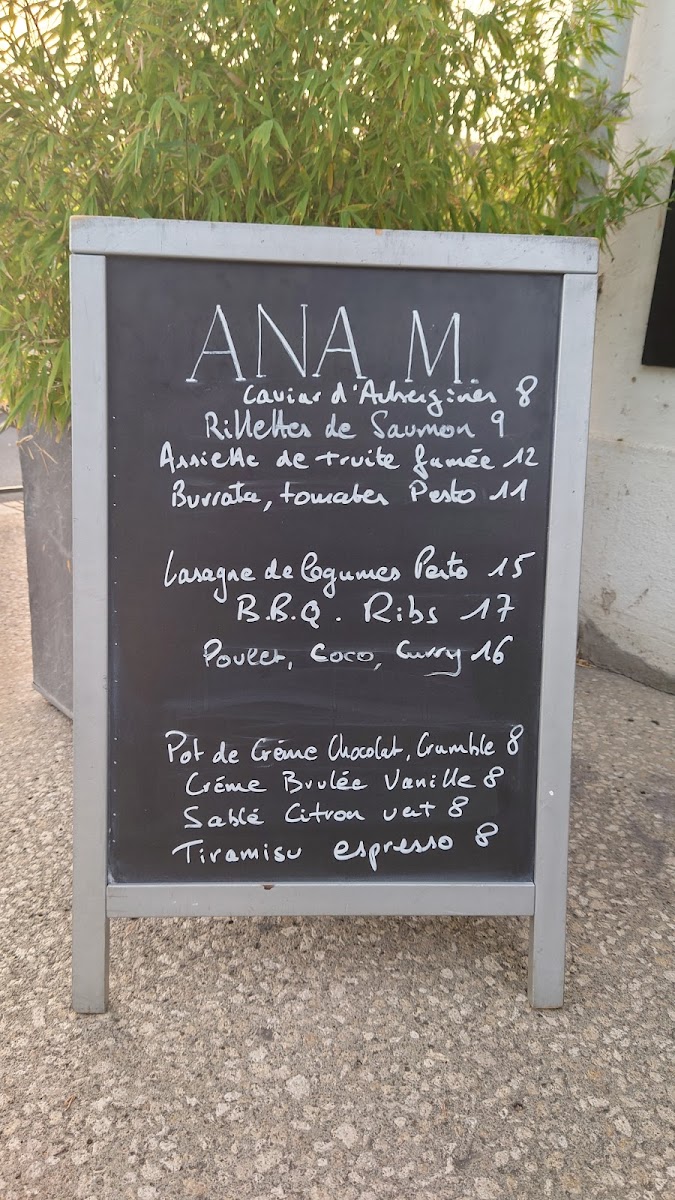 ANA M.
Caviar d'Aubergines 8
Rillettes de Saumon 9
Assiette de truite fumée 12
Burrata, tomates Pesto 11
Lasagne de légumes Pesto 15
B.B.Q. Ribs 17
Poulet, Coco, Curry 16
Pot de Crème Chocolat, Crumble 8
Crème Brulée Vanille 8
Sablé Citron vert 8
Tiramisu espresso 8